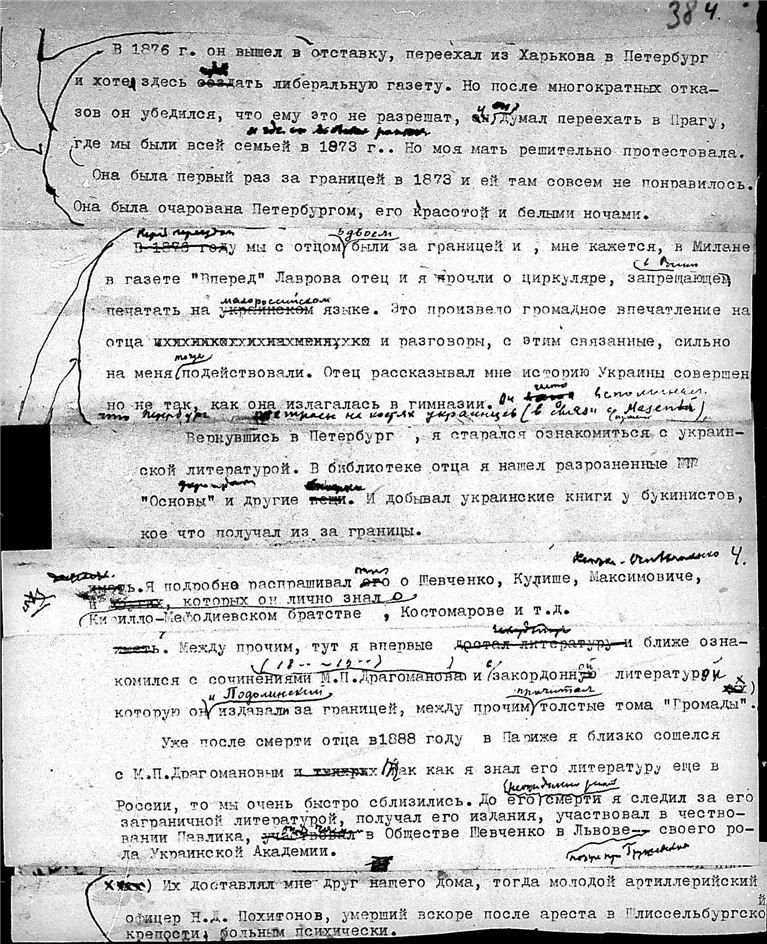 384.
В 1876 г. он вышел в отставку, переехал из Харькова в Петербург
и хотел здесь создать либеральную газету. Но после многократных отка-
зов он убедился, что ему это не разрешат, и он думал переехать в Прагу,
где мы были всей семьей в 1873 г.. Но моя мать решительно протестовала.
Она была первый раз за границей в 1873 и ей там совсем не понравилось.
Она была очарована Петербургом, его красотой и белыми ночами.
Перед переездом вдвоем
В 1873 году мы с отцом были за границей и , мне кажется, в Милане
в газете "Вперед" Лаврова отец и я прочли о циркуляре, запрещающем
малороссийском
печатать на украинском языке. Это произвело громадное впечатление на
отца и разговоры, с этим связанные, сильно
на меня тоже подействовали. Отец рассказывал мне историю Украины совершен
но не так, как она излагалась в гимназии. Он часто вспоминал,
что Петербург построен на костях украинцев (в связи с Мазепой).
Вернувшись в Петербург , я старался ознакомиться с украин-
ской литературой. В библиотеке отца я нашел разрозненные
"Основы" и другие вещи. И добывал украинские книги у букинистов,
кое что получал из за границы.
4.
иметь. Я подробно распрашивал его о Шевченко, Кулише, Максимовиче,
и других, которых он лично знал о
Кирилло-Мефодиевском братстве , Костомарове и т.д.
Между прочим, тут я впервые достал литературу и ближе озна-
комился с сочинениями М.П.Драгоманова и с закордонной литературой
и Подолинский прочитал
которую он издавал за границей, между прочим толстые тома "Громады".
Уже после смерти отца в1888 году в Париже я близко сошелся
с М.П.Драгомановым Так как я знал его литературу еще в
России, то мы очень быстро сблизились. До его смерти я следил за его
заграничной литературой, получал его издания, участвовал в чество-
вании Павлика, участвовал в Обществе Шевченко в Львове — своего ро-
да Украинской Академии.
ххх) Их доставлял мне друг нашего дома, тогда молодой артиллерийский
офицер Н.Д. Похитонов, умерший вскоре после ареста в Шлиссельбургской
крепости, больным психически.